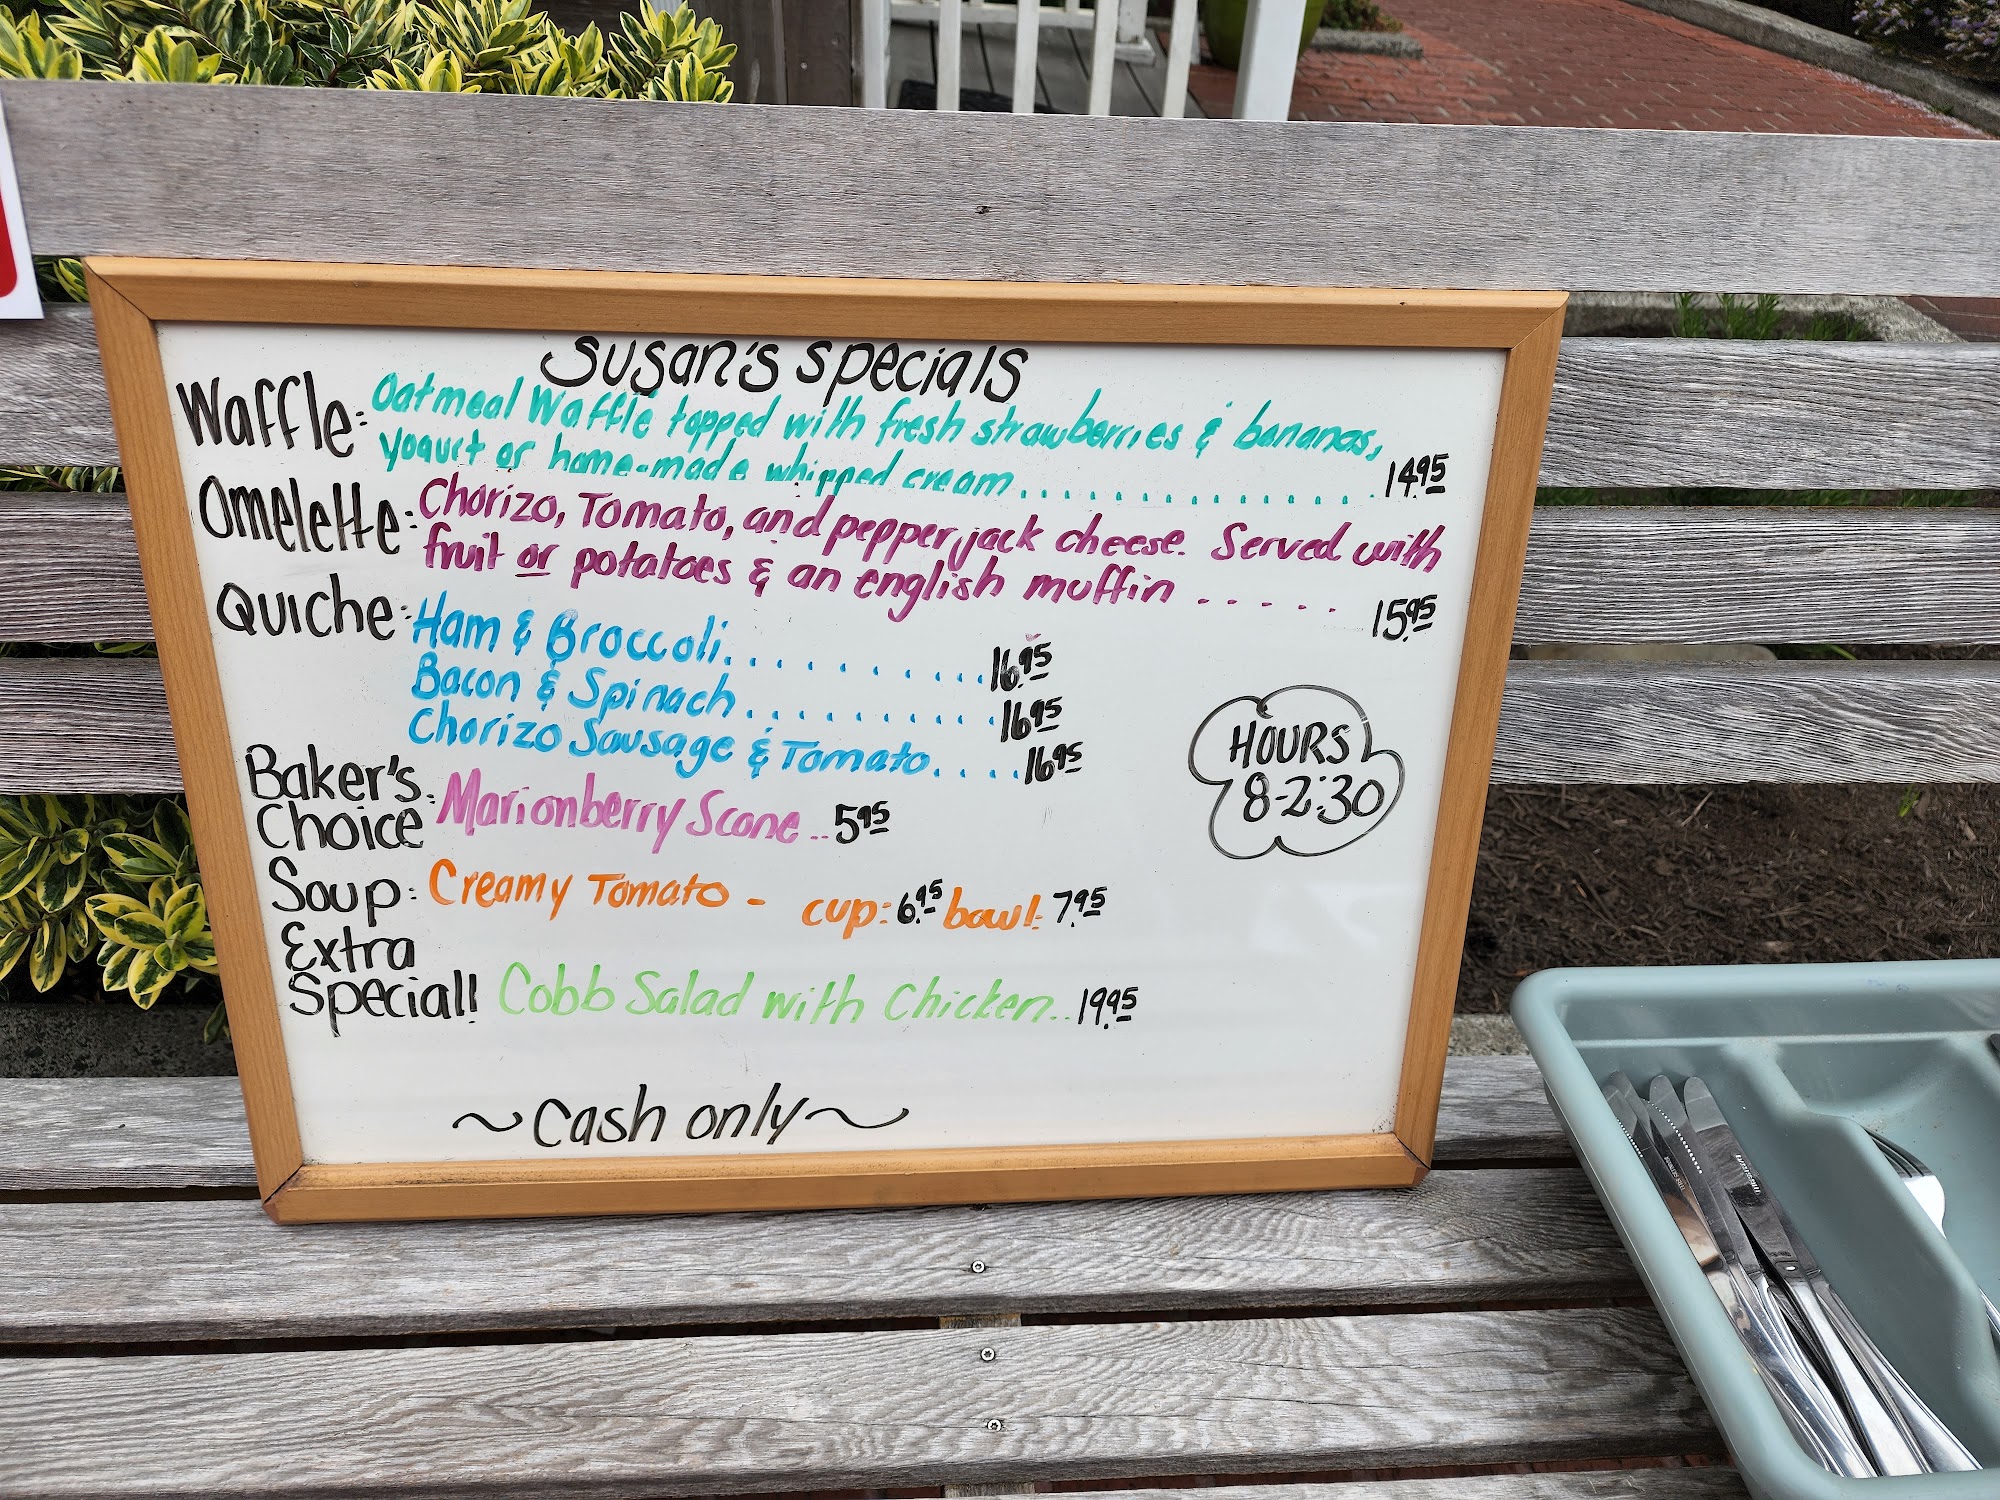 Susan's Specials
Waffle: Oatmeal Waffle topped with fresh strawberries & bananas,
yogurt or home-made whipped cream................14.95
Omelette: Chorizo, Tomato, and pepper jack cheese. Served with
fruit or potatoes & an english muffin ..... 15.95
Quiche: Ham & Broccoli..........16.95
Bacon & Spinach..........16.95
Chorizo Sausage & Tomato....16.95
HOURS
8-2:30
Baker's
Choice: Marionberry Scone..5.95
Soup: Creamy Tomato - cup: 6.95 bowl: 7.95
Extra
Special! Cobb Salad with Chicken..19.95
~Cash only~